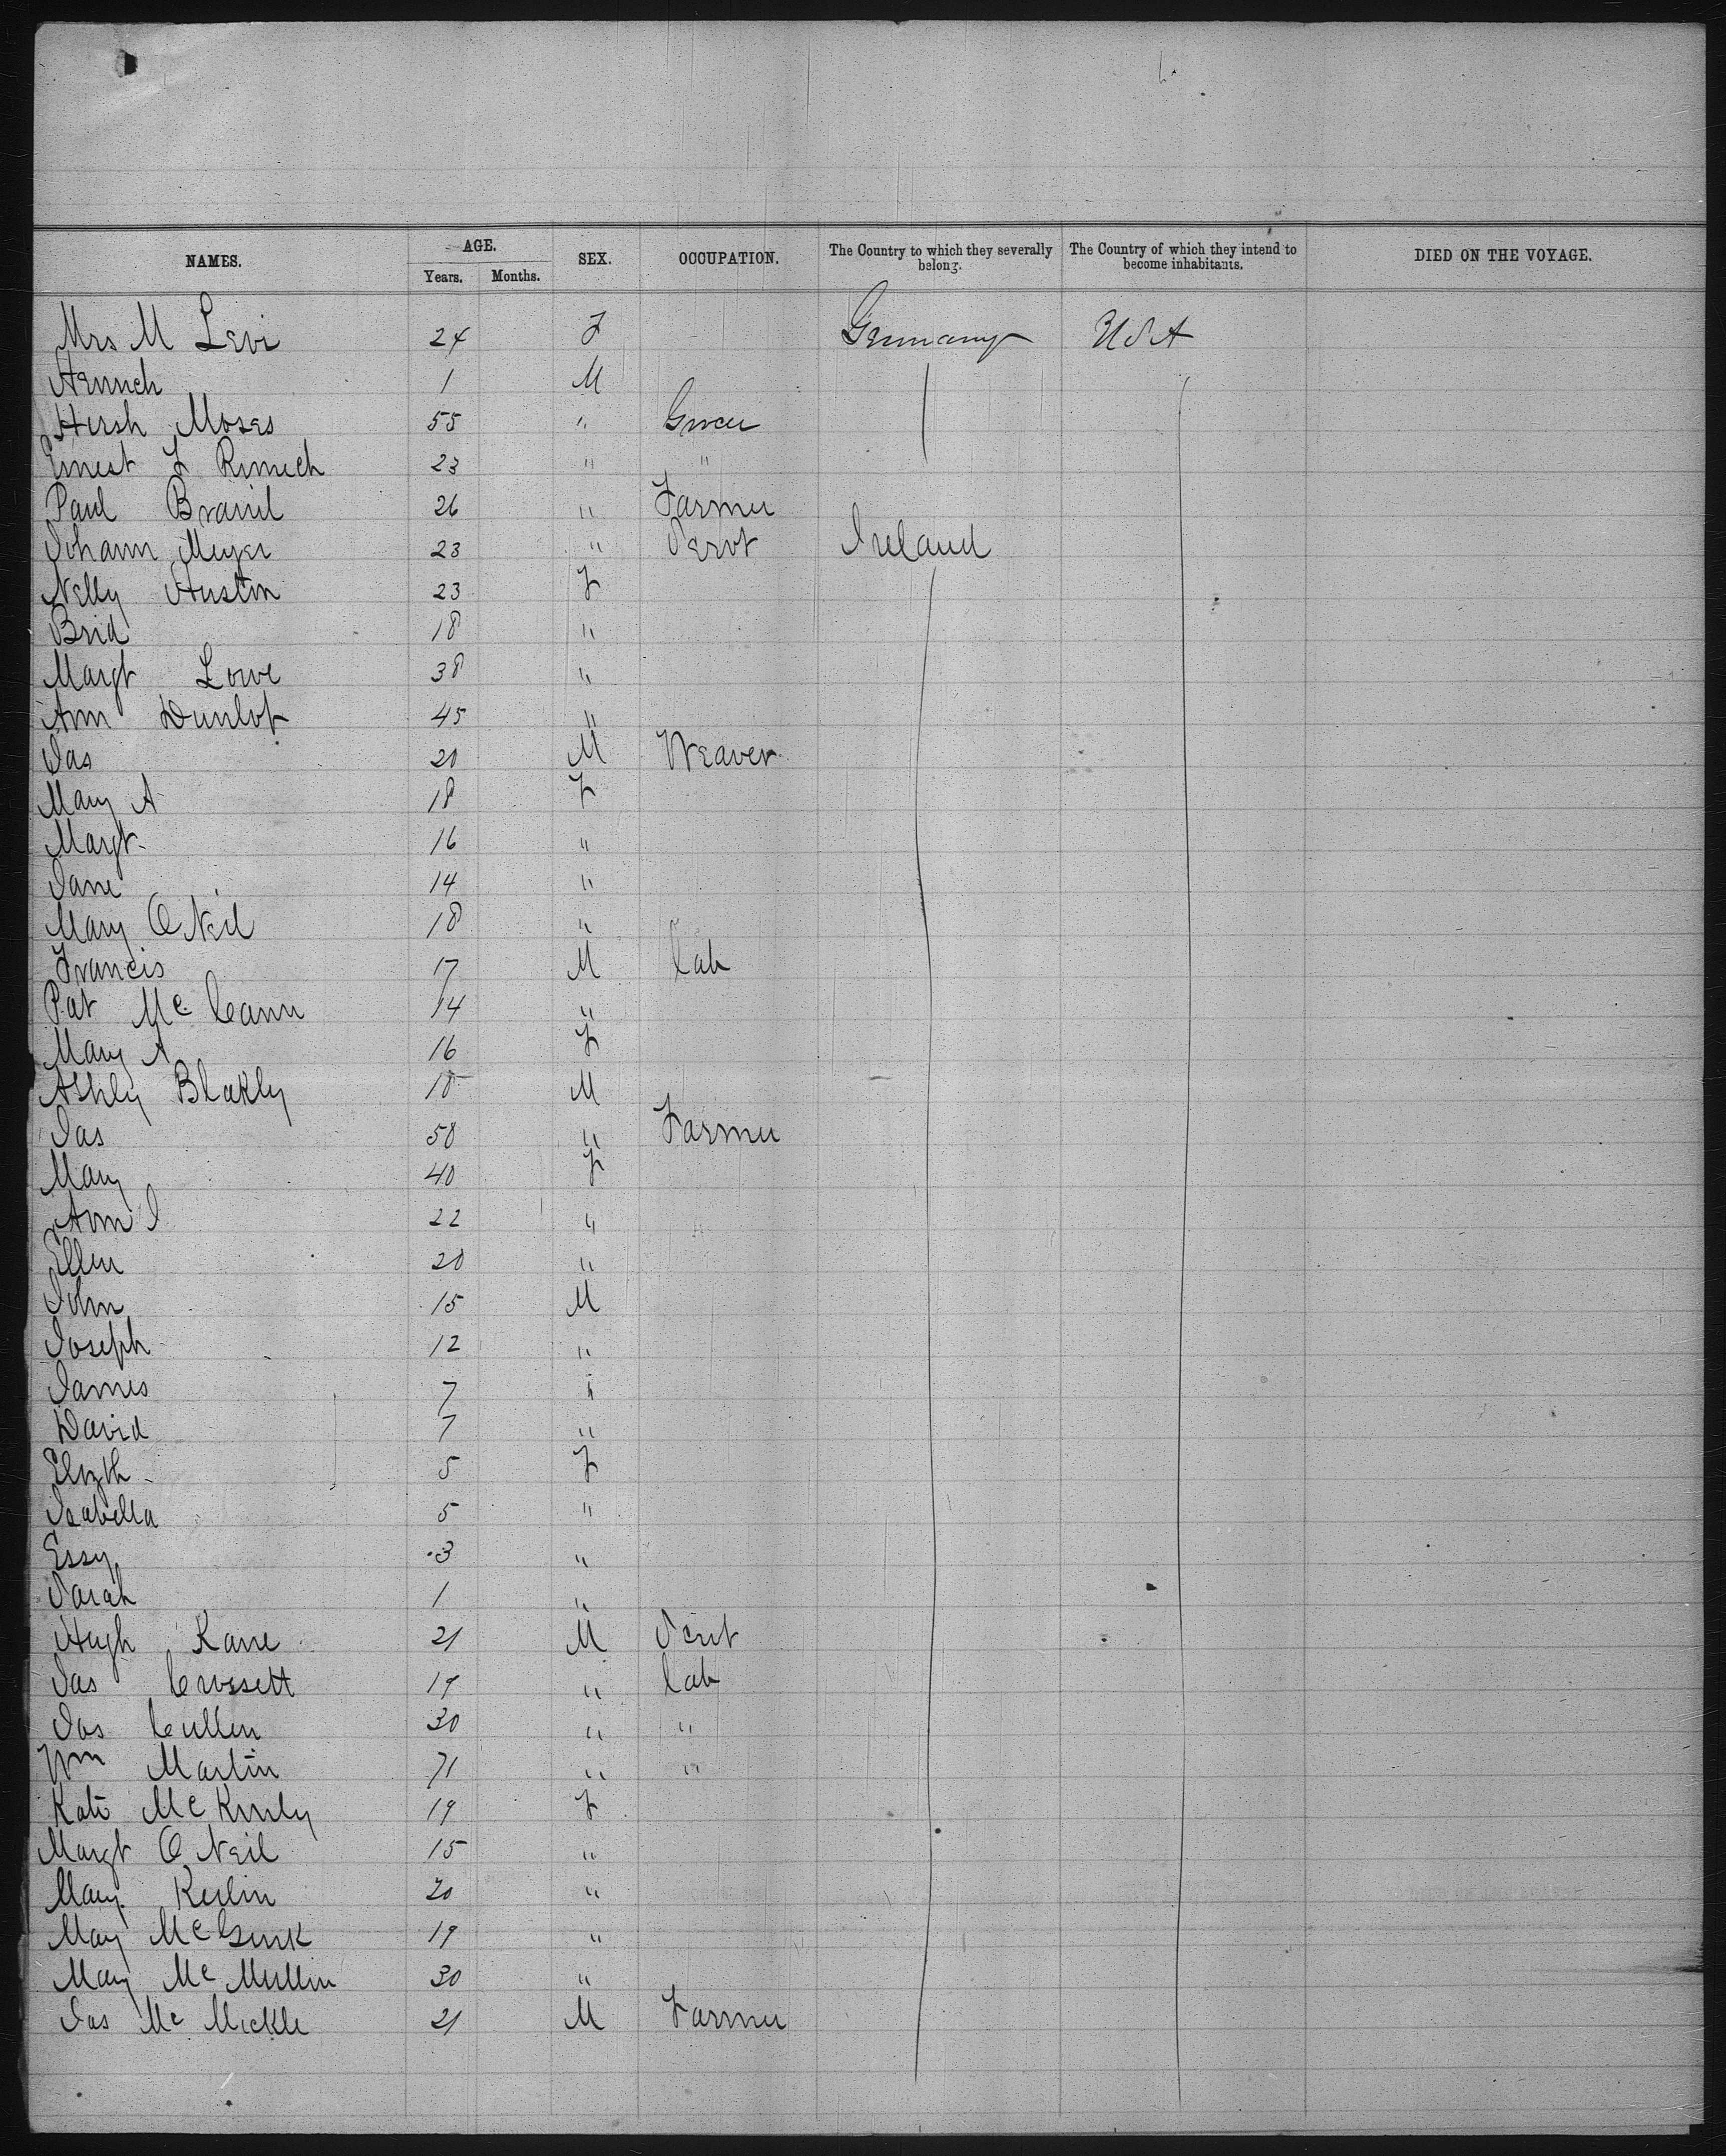 NAMES. AGE. SEX. OCCUPATION. The Country to which they severally belong. The Country of which they intend to become inhabitants. DIED ON THE VOYAGE.
Years. Months.
Mrs M Levi 24 F Germany USA
1 M
Hersh Moses 55 " Grocer
Ernest F 23 " "
Paul 26 " Farmer
Johann Meyer 23 " Servt Ireland
Nelly Huston 23 F
Brid 18 "
Margt Lowe 38 "
Ann Dunlop 45 "
Jas 20 M Weaver
Mary A 18 F
Margt 16 "
Jane 14 "
Mary O Neil 18 "
Francis 17 M Lab
Pat Mc Cann 14 "
Mary A 16 F
Ashly Blakly M
Jas 58 " Farmer
Mary 40 F
Ann J 22 "
Ellen 20 "
John 15 M
Joseph 12 "
James 7 "
David 7 "
Elizth 5 F
Isabella 5 "
Essy 3 "
Sarah 1 "
Hugh Kane 21 M Servt
Jas Crossett 19 " Lab
Jas Cullen 30 " "
Wm Martin 71 " "
Kate Mc Kinly 19 F
Margt O Neil 15 "
Mary Kerlin 20 "
Mary Mc Gurk 19 "
Mary Mc Mullin 30 "
Jas Mc Mickle 21 M Farmer